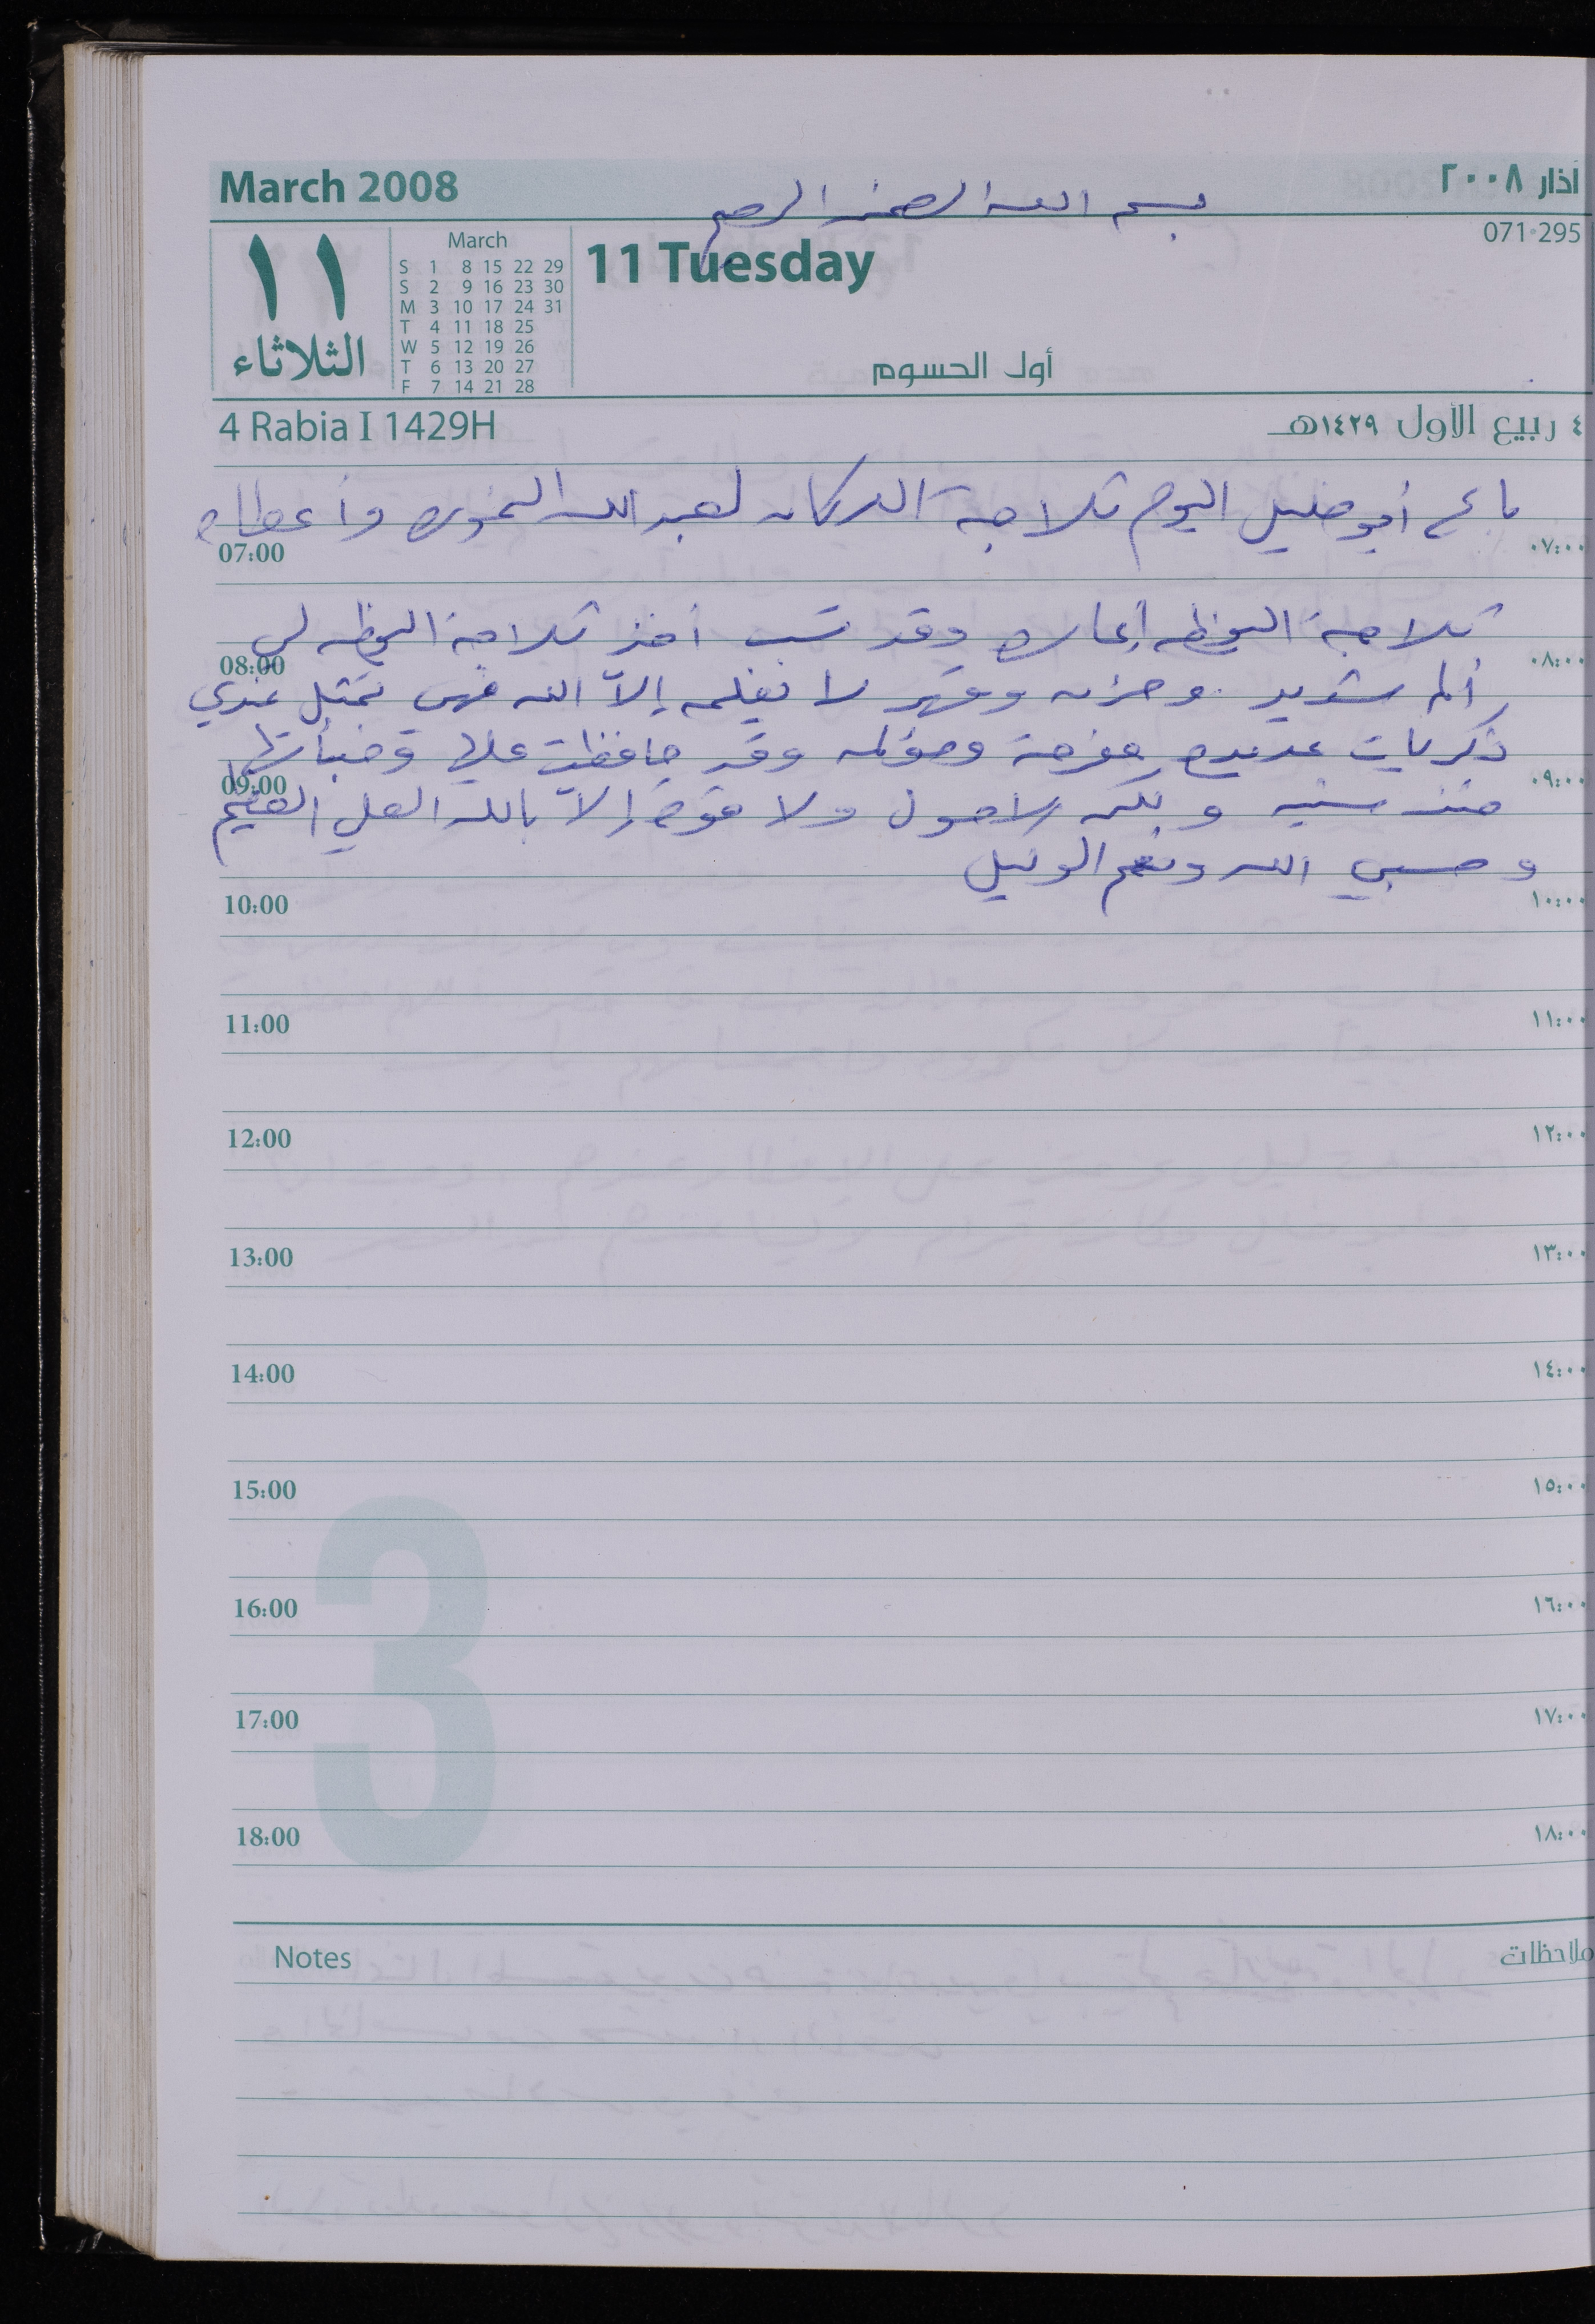 March 2008
أذار ٢٠٠٨
بسم الله الرحمن الرحيم
071-295
١١
الثلاثاء
March
S 1 8 15 22 29
S 2 9 16 23 30
M 3 10 17 24 31
T 4 11 18 25
W 5 12 19 26
T 6 13 20 27
F 7 14 21 28
11 Tuesday
أول الحسوم
4 Rabia I 1429H
٤ ربيع الأول ١٤٢٩هـ
باع أبو خليل اليوم ثلاجة الدكان لعبد الله وأعطاه
07:00 ٠٧:٠٠
ثلاجة البوظه إعاره وقد سبب أخذ ثلاجة البوظه لي
08:00 ٠٨:٠٠
ألم شديد وحزن وقهر لا يعلمه إلاّ الله فهي تمثل عندي
ذكريات عديده مفرحة ومؤلمه وقد حافظت عليها وخبأتها
09:00 ٠٩:٠٠
منذ سنين ولكن لاحول ولا قوة إلاّ بالله العلي العظيم
وحسبي الله ونعم الوكيل
10:00 ١٠:٠٠
11:00 ١١:٠٠
12:00 ١٢:٠٠
13:00 ١٣:٠٠
14:00 ١٤:٠٠
15:00 ١٥:٠٠
16:00 ١٦:٠٠
17:00 ١٧:٠٠
18:00 ١٨:٠٠
3
Notes
ملاحظات